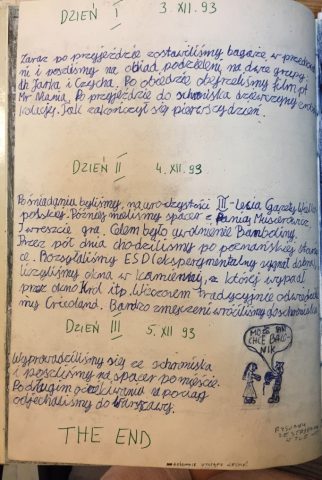 DZIEŃ I 3.XII.93
Zaraz po przyjeździe zostawiliśmy bagaże w przedsio
ni i poszliśmy na obiad podzieleni na dwie grupy.
dh Jacka i Czycha. Po obiedzie obejrzeliśmy film pt
Mr Mania. Po przyjeździe do schroniska
kolacje. Tak zakończył się pierwszy dzień.
DZIEŃ II 4.XII.93
Po śniadaniu byliśmy na uroczystości III-lecia Gazety Wielko
polskiej. Później mieliśmy spacer z Panią
i wreszcie gra. Celem było uwolnienie
Przez pół dnia chodziliśmy po poznańskiej starów
ce. Rozsyłaliśmy ESD (eksperymentalny sygnał dobra),
liczyliśmy okna w kamienicy, z której wypadł
przez okno Król itp. Wieczorem tradycyjnie odwiedzili
my Cricoland. Bardzo zmęczeni wróciliśmy do schroniska
DZIEŃ III 5.XII.93
MOŻE PAN
CHCE BALO-
NIK
Wyprowadziliśmy się ze schroniska
i poszliśmy na spacer po mieście.
Po długim oczekiwaniu na pociąg
odjechaliśmy do Warszawy.
THE END
RYSUNKI